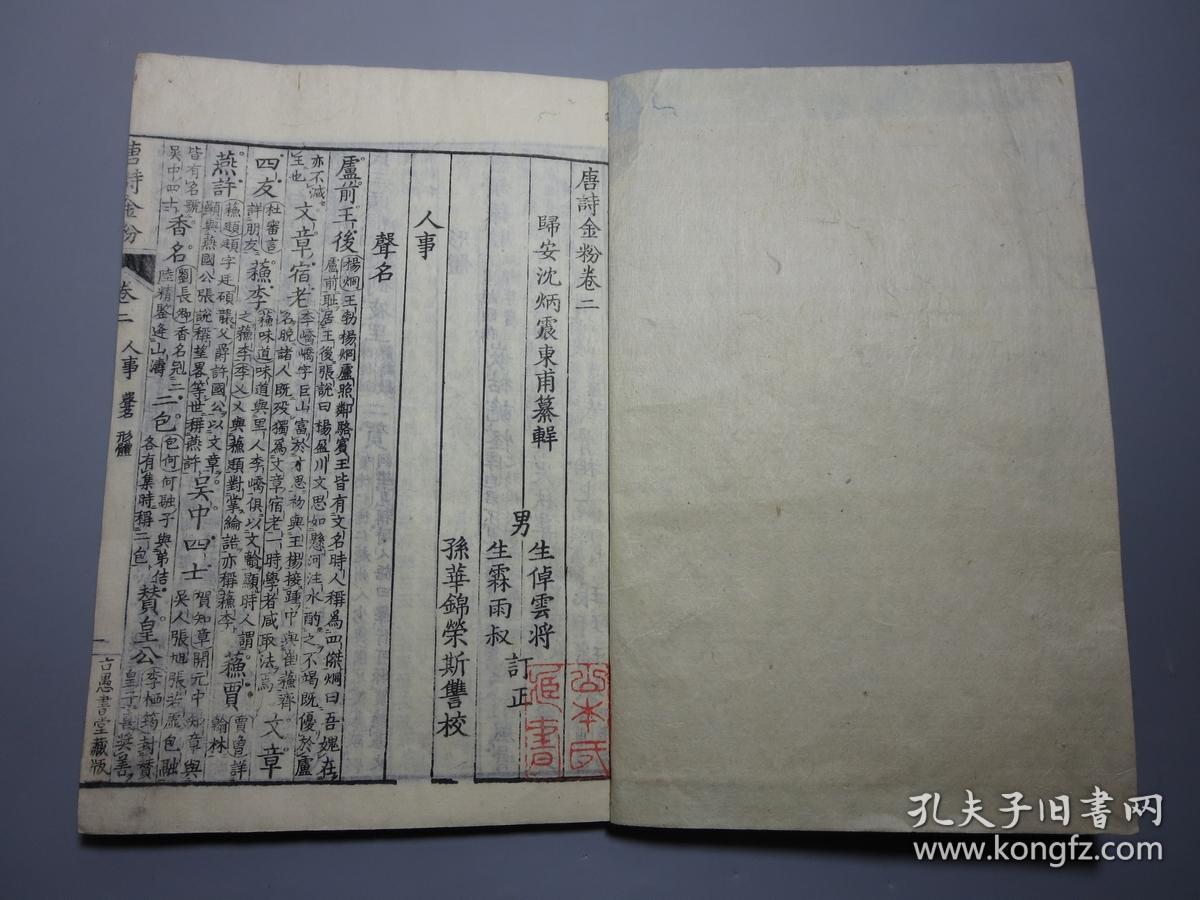 唐詩金粉卷二
歸安沈炳震東甫纂輯
男 生倬雲將
生霖雨叔
訂正
孫華錦榮斯讐校
人事
聲名
盧前王後 楊烱 王勃楊烱盧照鄰駱賓王皆有文名時人稱為四傑烱曰吾媿在
盧前耻居王後張說曰楊盈川文思如懸河注水酌之不竭既優於盧
亦不減
王也 文章宿老 李嶠 嶠字巨山富於才思初與王楊接踵中與崔蘓齊
名晚諸人既歿獨為文章宿老一時學者咸取法焉 文章
四友 杜審言
詳朋友 蘓李 蘓味道 味道與里人李嶠俱以文翰顯時人謂
之蘓李李乂 乂與蘓頲對掌綸誥亦稱蘓李 蘓賈 賈曾詳
翰林
燕許 蘓頲 頲字廷碩襲父爵許國公以文章
顯與燕國公張說稱望畧等世稱燕許 吳中四士 賀知章 開元中知章與
吳人張旭張若虛包融
皆有名號
吳中四士 香名 劉長卿 香名冠二
陸精鑒逄山濤 二包 包何 何融子與弟佶
各有集時稱二包 贊皇公 李栖筠 封贊
皇子喜奨善
唐詩金粉
卷二 人事 聲名 形體
一
古愚書堂藏版
山本氏
藏書
孔夫子旧書网
www.kongfz.com